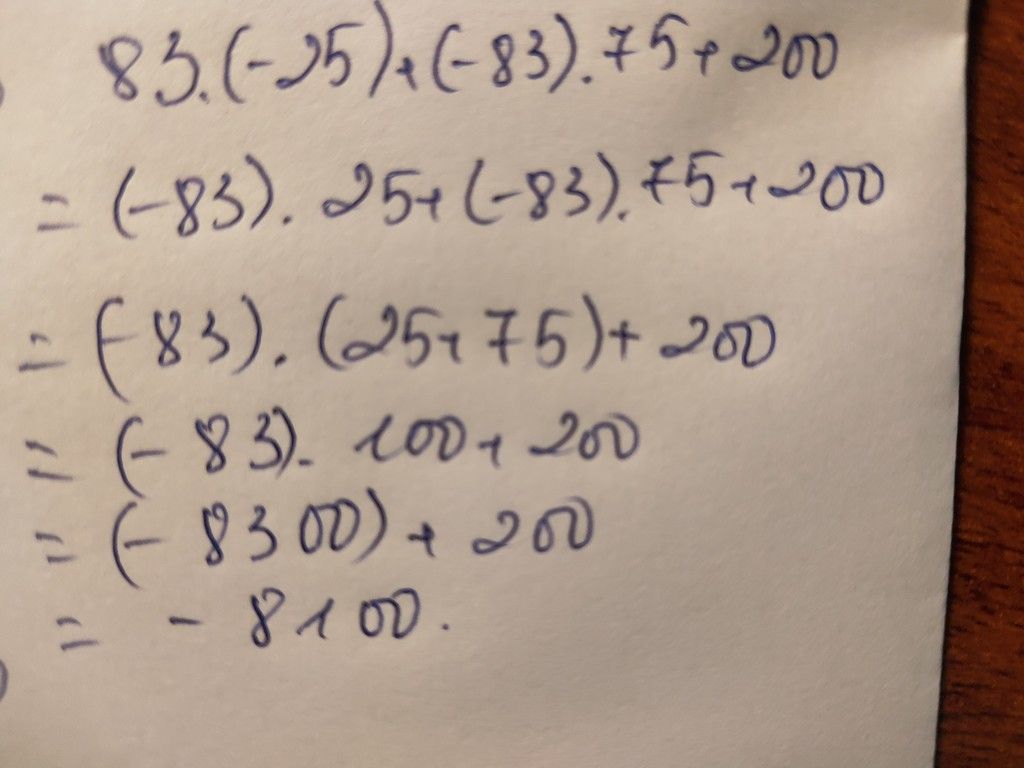 83.(-25)+(-83).75+200
= (-83). 25+(-83).75+200
= (-83).(25+75)+200
= (-83). 100+200
= (-8300)+200
= - 8100.